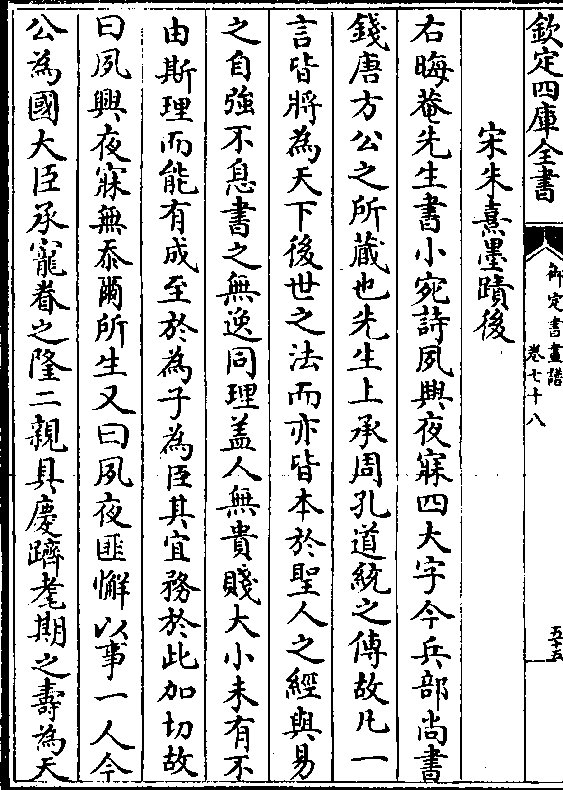 欽定四庫全書
御定書畫譜
卷七十八
五十五
宋朱熹墨蹟後
右晦菴先生書小宛詩夙興夜寐四大字今兵部尚書
錢唐方公之所藏也先生上承周孔道統之傳故凡一
言皆將為天下後世之法而亦皆本於聖人之經與易
之自強不息書之無逸同理盖人無貴賤大小未有不
由斯理而能有成至於為子為臣其宜務於此加切故
曰夙興夜寐無忝爾所生又曰夙夜匪懈以事一人今
公為國大臣承寵眷之隆二親具慶躋耄期之壽為天